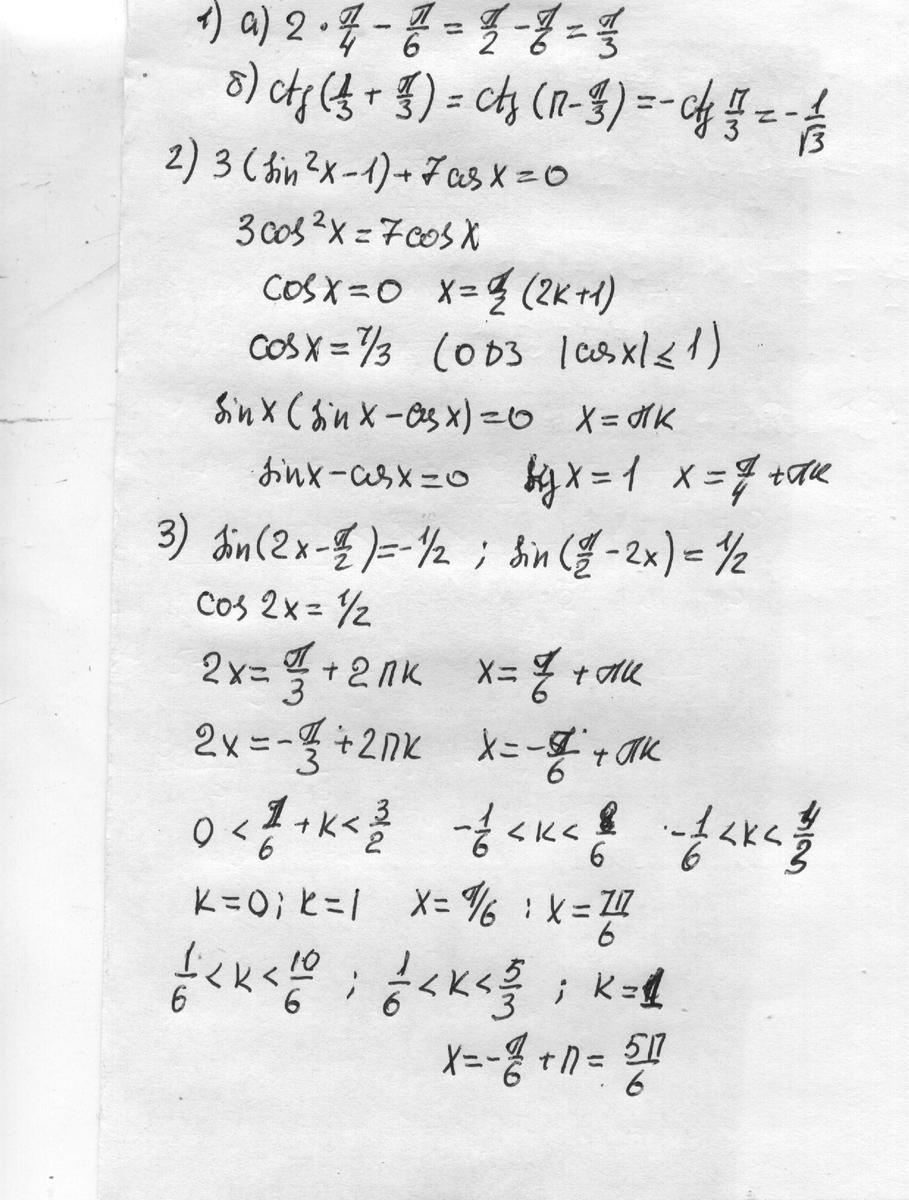 1) а) 2 · π/4 − π/6 = π/2 − π/6 = π/3
б) ctg(1/3 + π/3) = ctg(π − π/3) = −ctg π/3 = −1/√3
2) 3(sin²x − 1) + 7cosx = 0
3cos²x = 7cosx
cosx = 0 x = π/2 (2к+1)
cosx = 7/3 (ОДЗ |cosx| ≤ 1)
sinx(sinx − cosx) = 0 x = πк
sinx − cosx = 0 tgx = 1 x = π/4 + πк
3) sin(2x − π/2) = −1/2 ; sin(π/2 − 2x) = 1/2
cos 2x = 1/2
2x = π/3 + 2πк x = π/6 + πк
2x = −π/3 + 2πк x = −π/6 + πк
0 < 1/6 + к < 3/2 −1/6 < к < 8/6 −1/6 < к < 4/3
к = 0 ; к = 1 x = π/6 ; x = 7π/6
1/6 < к < 10/6 ; 1/6 < к < 5/3 ; к = 1
x = −π/6 + π = 5π/6